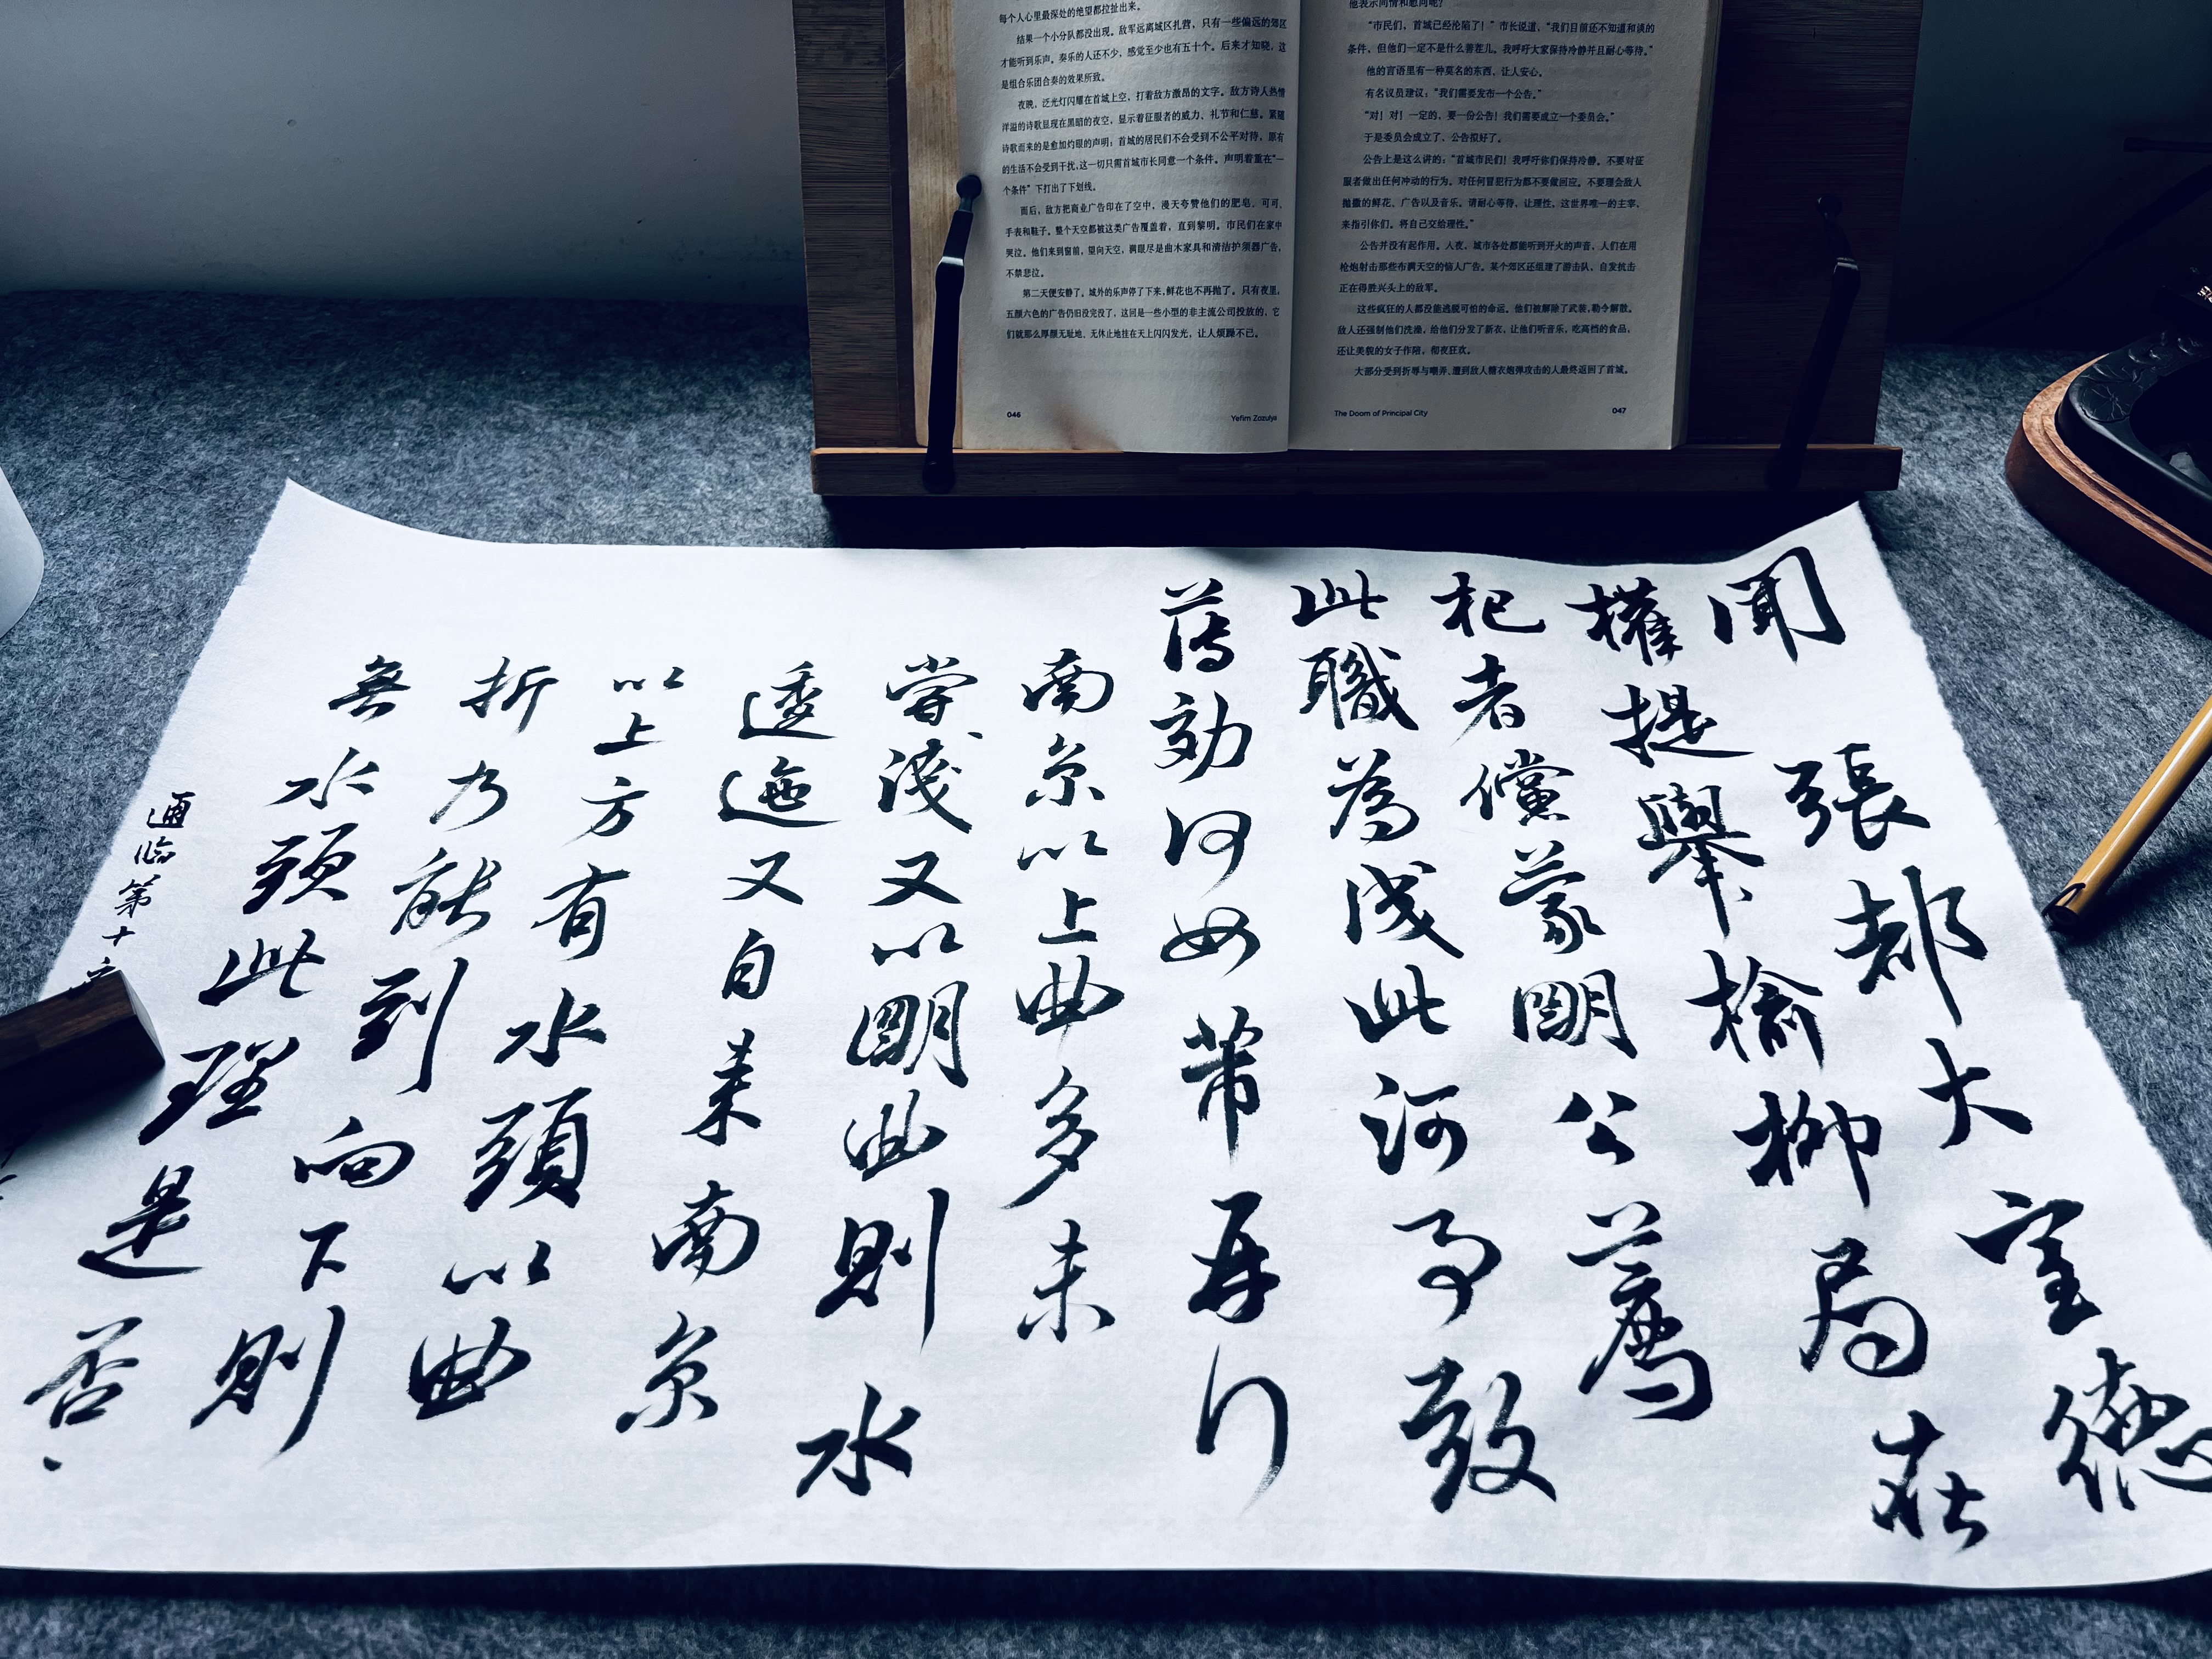 每个人心里最深处的绝望都拉扯出来。
结果一个小分队都没出现。敌军远离城区扎营，只有一些偏远的郊区
才能听到乐声。奏乐的人还不少，感觉至少也有五十个。后来才知晓，这
是组合乐团合奏的效果所致。
夜晚，泛光灯闪耀在首城上空，打着敌方激昂的文字。敌方诗人热情
洋溢的诗歌显现在黑暗的夜空，显示着征服者的威力、礼节和仁慈。紧随
诗歌而来的是愈加灼眼的声明：首城的居民们不会受到不公平对待，原有
的生活不会受到干扰，这一切只需首城市长同意一个条件。声明着重在“一
个条件”下打出了下划线。
而后，敌方把商业广告印在了空中，漫天夸赞他们的肥皂、可可、
手表和鞋子。整个天空都被这类广告覆盖着，直到黎明。市民们在家中
哭泣。他们来到窗前，望向天空，满眼尽是曲木家具和清洁护须器广告，
不禁悲泣。
第二天便安静了。城外的乐声停了下来，鲜花也不再抛了。只有夜里，
五颜六色的广告仍旧没完没了，这回是一些小型的非主流公司投放的，它
们就那么厚颜无耻地、无休止地挂在天上闪闪发光，让人烦躁不已。
046
Yefim Zozulya
他表示同情和慰问呢？
“市民们，首城已经沦陷了！”市长说道，“我们目前还不知道和谈的
条件，但他们一定不是什么善茬儿。我呼吁大家保持冷静并且耐心等待。”
他的言语里有一种莫名的东西，让人安心。
有名议员建议：“我们需要发布一个公告。”
“对！对！一定的，要一份公告！我们需要成立一个委员会。”
于是委员会成立了，公告拟好了。
公告上是这么讲的：“首城市民们！我呼吁你们保持冷静。不要对征
服者做出任何冲动的行为。对任何冒犯行为都不要做回应。不要理会敌人
抛撒的鲜花、广告以及音乐。请耐心等待，让理性，这世界唯一的主宰，
来指引你们。将自己交给理性。”
公告并没有起作用。入夜，城市各处都能听到开火的声音，人们在用
枪炮射击那些布满天空的恼人广告。某个郊区还组建了游击队，自发抗击
正在得胜兴头上的敌军。
这些疯狂的人都没能逃脱可怕的命运。他们被解除了武装，勒令解散。
敌人还强制他们洗澡，给他们分发了新衣，让他们听音乐，吃高档的食品，
还让美貌的女子作陪，彻夜狂欢。
大部分受到折辱与嘲弄、遭到敌人糖衣炮弹攻击的人最终返回了首城。
The Doom of Principal City
047
聞張都大宣德
權提舉榆柳局在
杞者儻蒙明公薦
此職為成此河事致
薄効何如芾再行
南京以上曲多未
嘗淺又以明曲則水
逶迤又自來南京
以上方有水頭以曲
折乃能到向下則
無水頭此理是否
通臨第十